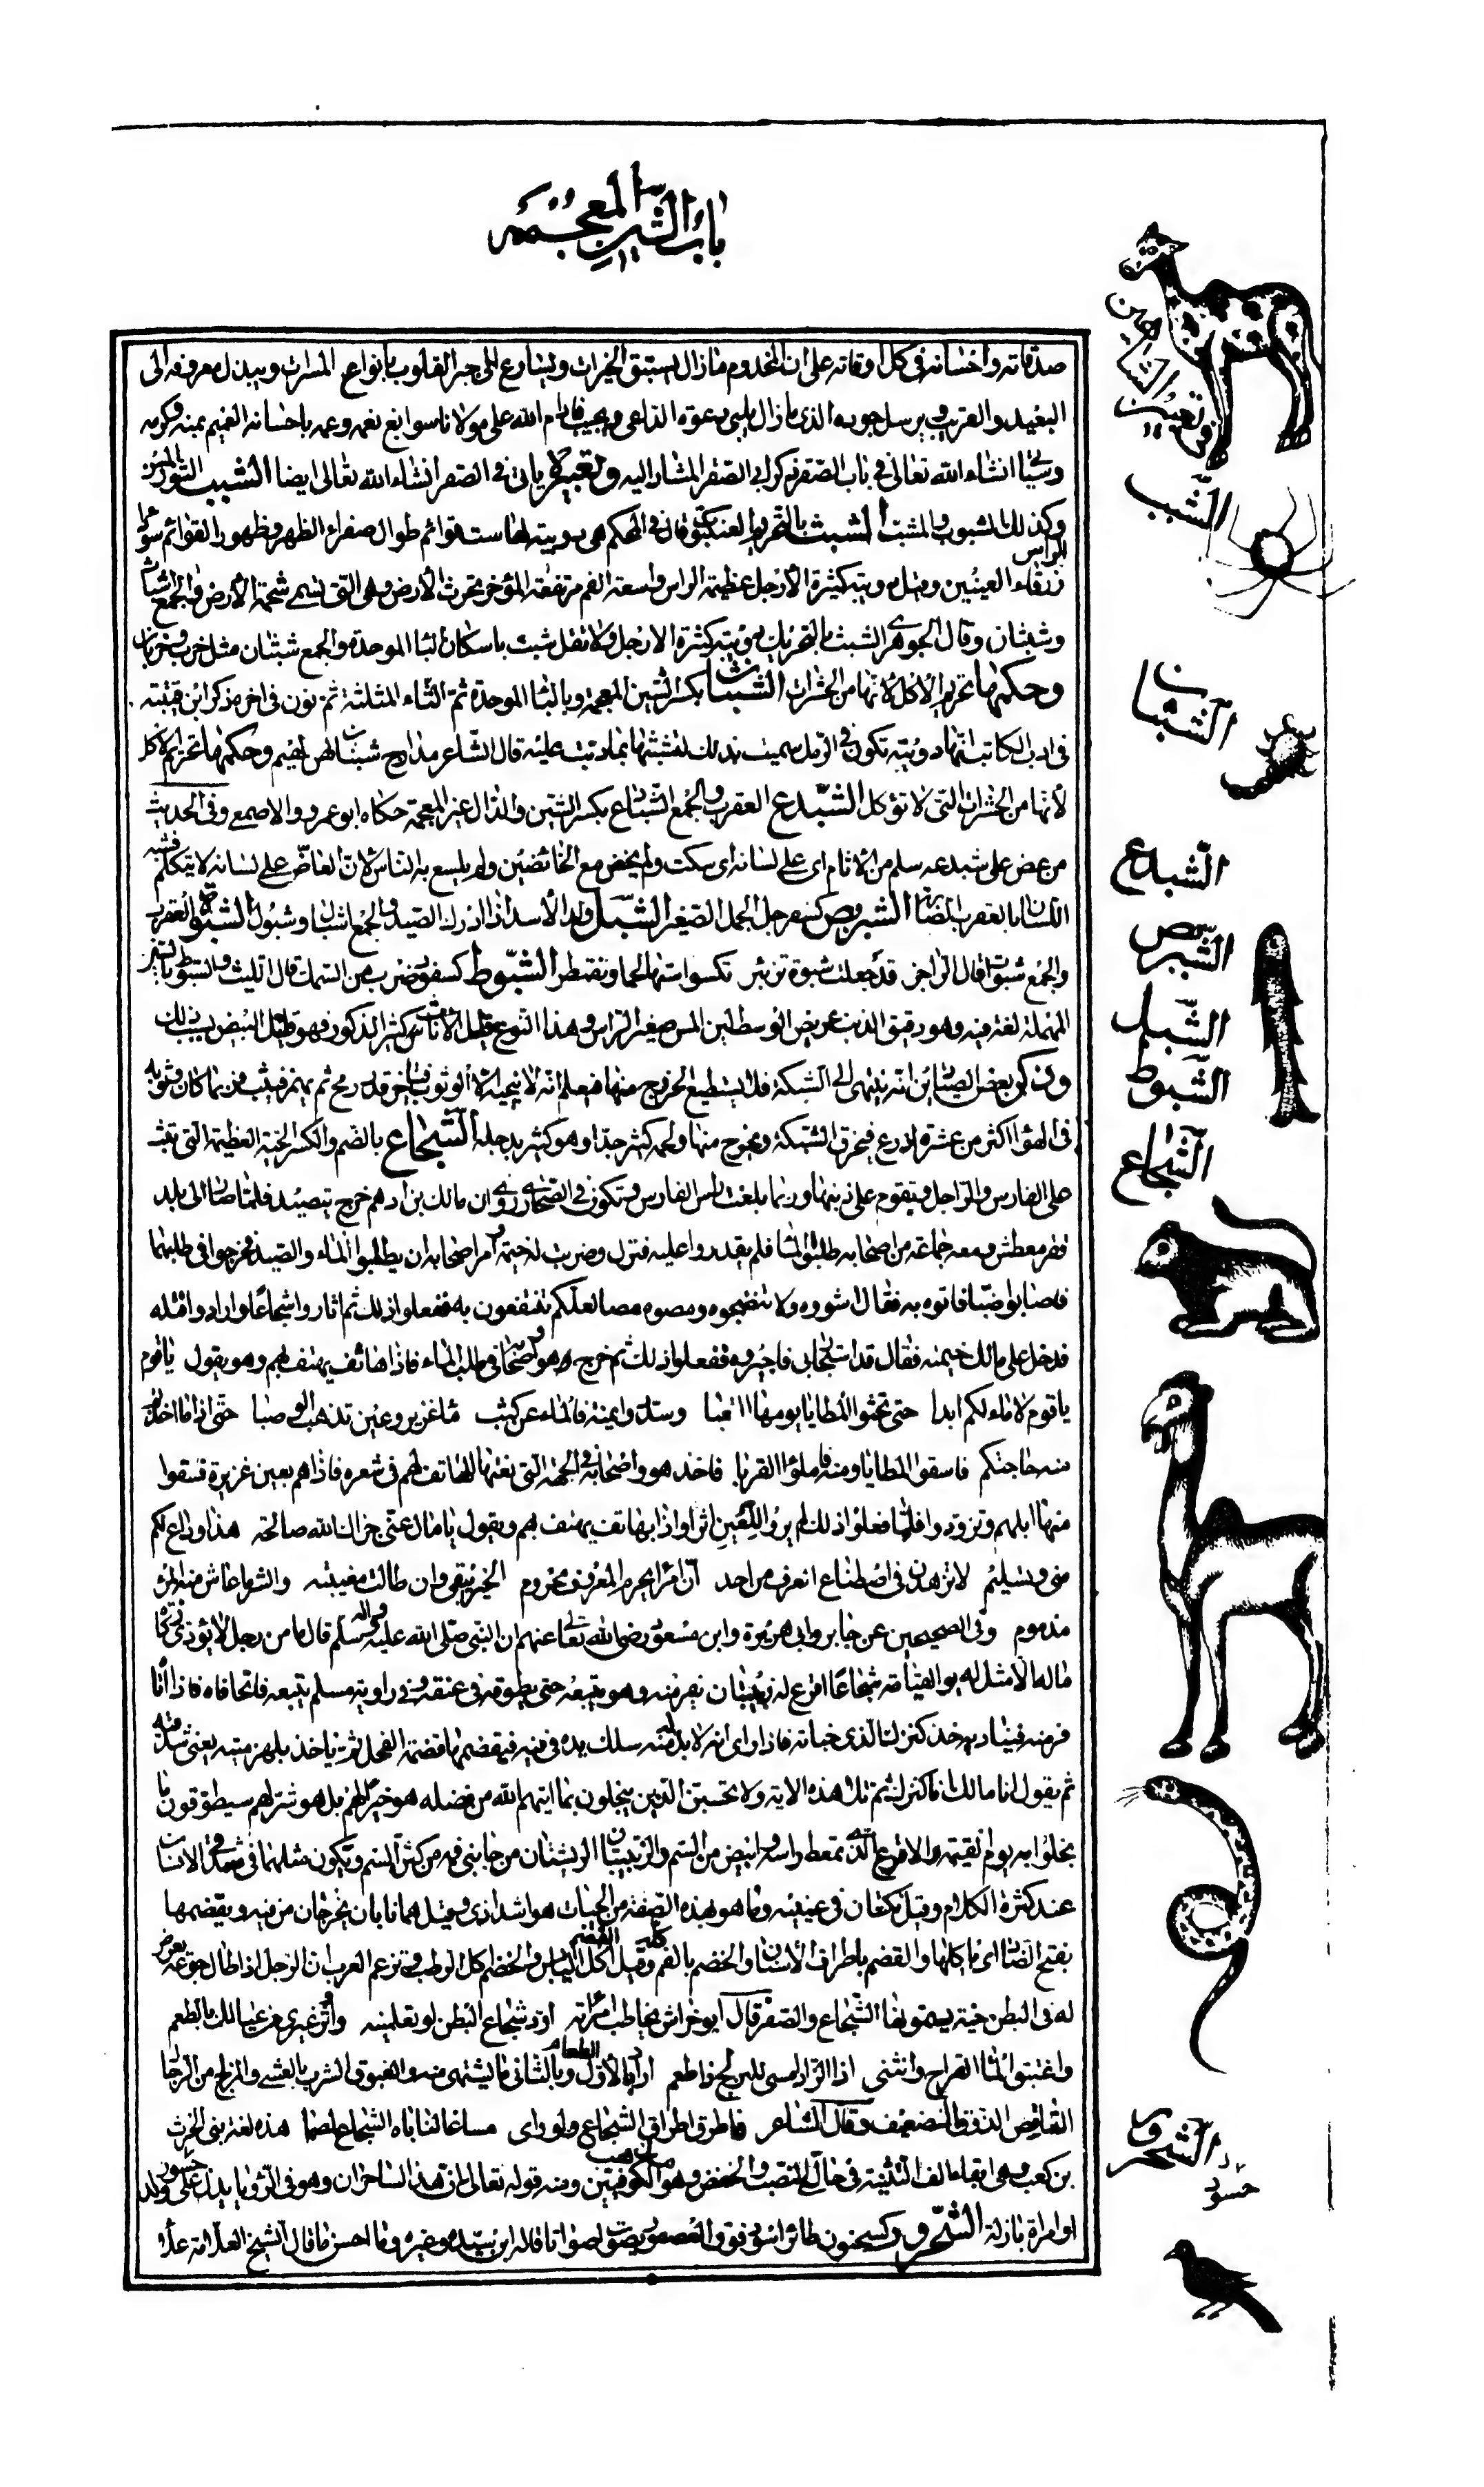 باب الشين المعجمة
صدقاته واحسانه فى كل اوقاته على ان المخدوم ما زال يستبق الخيرات ويسارع الى جبر القلوب بانواع المسرات ويبذل معروفه الى
البعيد والقريب ويرسل جوده الذى ما زال يلبى دعوة الداعى ويجيب فادام الله على مولانا سوابغ نعمه وعمه باحسانه العميم بمنه وكرمه
وسيأتى انشاء الله تعالى فى باب الصقر ذكر ابى الصقر المشار اليه وتعبيره ياتى فى الصقر انشاء الله تعالى ايضا الشبب الثور المسن
وكذلك المشبوب والمشب الشبث بالتحريك العنكبوت قال فى المحكم هى دويبة لها ست قوائم طوال صفراء الظهر وظهور القوائم سوداء الراس
زرقاء العينين وقيل دويبة كثيرة الارجل عظيمة الراس واسعة الفم مرتفعة المؤخر تحرث الارض وهى التى تسمى شحمة الارض والجمع اشباث
وشبثان وقال الجوهرى الشبث بالتحريك دويبة كثيرة الارجل ولا تقل شبث باسكان الباء الموحدة والجمع شبثان مثل خرب وخربان
وحكمها تحريم الاكل لانها من الحشرات الشبثان بكسر الشين المعجمة وبالباء الموحدة ثم الثاء المثلثة ثم نون فى اخره ذكر ابن قتيبة
فى ادب الكاتب انها دويبة تكون فى الرمل سميت بذلك لتشبثها بما دبت عليه قال الشاعر مدارج شبثان لهن هميم وحكمها تحريم الاكل
لانها من الحشرات التى لا تؤكل الشبدع العقرب والجمع الشبادع بكسر الشين والدال غير المعجمة حكاه ابو عمرو والاصمعى وفى الحديث
من عض على شبدعه سلم من الاثام اى على لسانه اى سكت ولم يخض مع الخائضين ولم يلسع به الناس لان العاض على لسانه لا يتكلم فشبه
اللسان بالعقرب الضارة الشبربص كسفرجل الجمل الصغير الشبل ولد الاسد اذا ادرك الصيد والجمع اشبال وشبول الشبوة العقرب
والجمع شبوات قال الراجز قد جعلت شبوة تزبئر تكسو استها لحما وتقمطر الشبوط كسفود ضرب من السمك قال الليث والسبوط بالسين
المهملة لغة فيه وهو دقيق الذنب عريض الوسط لين المس صغير الراس وهذا النوع قليل الاناث كثير الذكور فهو قليل البيض بسبب ذلك
وذكر بعض الصيادين انه ينتهى الى الشبكة فلا يستطيع الخروج منها فيعلم انه لا ينجيه الا الوثوب فيتأخر قدر رمح ثم يهمز فيثب فربما كان وثوبه
فى الهواء اكثر من عشرة اذرع فيخرق الشبكة ويخرج منها ولحمه كثير جدا وهو كثير بدجلة الشجاع بالضم والكسر الحية العظيمة التى تثب
على الفارس والراجل وتقوم على ذنبها وربما بلغت راس الفارس وتكون فى الصحارى روى ان مالك بن ادهم خرج يتصيد فلما صار الى بلد
قفر معطش ومعه جماعة من اصحابه طلبوا الماء فلم يقدروا عليه فنزل وضربت له خيمة وامر اصحابه ان يطلبوا الماء والصيد فخرجوا فى طلبهما
فاصابوا ضبا فاتوه به فقال اشووه ولا تنضجوه ومصوه مصا لعلكم تنتفعون به ففعلوا ذلك ثم اثاروا شجاعا وارادوا قتله
فدخل على مالك خيمته فقال قد استجار بى فاجيروه ففعلوا ذلك ثم خرج هو واصحابه فى طلب الماء فاذا هاتف يهتف بهم وهو يقول يا قوم
يا قوم لا ماء لكم ابدا حتى تحثوا المطايا يومها التعبا وسددوا يمنة فالماء عن كثب ماء غزير وعين تذهب الوصبا حتى اذا ما اخذتم
منه حاجتكم فاسقوا المطايا ومنه فاملؤا القربا فاخذ هو واصحابه فى الجهة التى نعتها الهاتف لهم فى شعره فاذا هم بعين غزيرة فسقوا
منها ابلهم وتزودوا فلما فعلوا ذلك لم يروا للعين اثرا واذا بهاتف يهتف بهم ويقول يا مال عنى جزاك الله صالحة هذا وداع لكم
منى وتسليم لا تزهدن فى اصطناع العرف من احد ان امرأ يحرم المعروف محروم الخير يبقى وان طالت مغيبته والشر ما عاش منه المرء
مذموم وفى الصحيحين عن جابر وابى هريرة وابن مسعود رضى الله تعالى عنهم ان النبى صلى الله عليه واله وسلم قال ما من رجل لا يؤدى زكاة
ماله الا مثل له يوم القيامة شجاعا اقرع له زبيبتان يفر منه وهو يتبعه حتى يطوقه فى عنقه وفى رواية مسلم يتبعه فاتحا فاه فاذا اتاه
فر منه فيناديه خذ كنزك الذى خبأته فاذا راى انه لا بد له منه سلك يده فى فيه فيقضمها قضمة الفحل ثم ياخذ بلهزمتيه يعنى شدقيه
ثم يقول انا مالك انا كنزك ثم تلا هذه الاية ولا تحسبن الذين يبخلون بما اتيهم الله من فضله هو خيرا لهم بل هو شر لهم سيطوقون ما
بخلوا به يوم القيمة والاقرع الذى تمعط راسه وابيض من السم والزبيبتان الريشتان من جانبى فمه من كثرة السم ويكون مثلهما فى شدقى الانسان
عند كثرة الكلام وقيل نكتتان فى عينيه وما هو بهذه الصفة من الحيات هو اشد اذى وقيل هما نابان يخرجان من فيه ويقضمها
بفتح الضاد اى ياكلها والقضم باطراف الاسنان والخضم بالفم كله وقيل القضم اكل اليابس والخضم اكل الرطب وتزعم العرب ان الرجل اذا طال جوعه يعرض
له فى البطن حية يسمونها الشجاع والصفر قال ابو خراش يخاطب امراته ارد شجاع البطن لو تعلمينه واوثر غيرى من عيالك بالطعم
واغتبق الماء القراح وانثنى اذا الزاد امسى للمزلج ذا طعم اراد بالاول الطعام وبالثانى ما يشتهى منه والغبوق الشرب بالعشى والمزلج من الرجال
الناقص الدون الضعيف وقال الشاعر فاطرق اطراق الشجاع ولو راى مساغا لناباه الشجاع لصمما هذه لغة بنى الحرث
بن كعب وهى ابقاء الف التثنية فى حال النصب والخفض وهو مذهب الكوفيين ومنه قوله تعالى ان هذان لساحران وهو فى الرؤيا يدل على ولد جسور
او امراة باذلة الشحرور كسحنون طائر اسود فوق العصفور يصوت اصواتا قاله ابن سيده وغيره وما احسن ما قال الشيخ العلامة علاء
الشب
الشبثان
الشبدع
الشبربص
الشبل
الشبوط
الشجاع
الشحرور